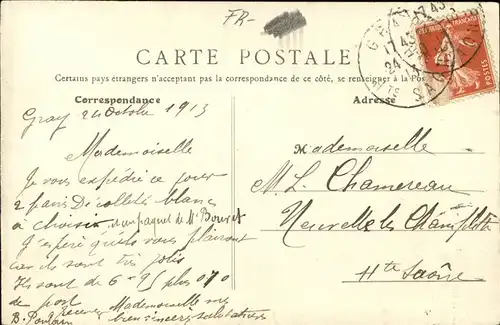 FR-
CARTE POSTALE
Certains pays étrangers n'acceptant pas la correspondance de ce côté, se renseigner à la Pos
Correspondance
Adresse
Gray 24 Octobre 1913
Mademoiselle
Je vous expédie ce jour
2 paires Décolleté blancs
à choisir
J'espère qu'ils vous plairont
car ils sont très jolis
Ils sont de 6-95 plus 0 70
de port
Recevez Mademoiselle mes
bien sincères salutations
B. Poulain
Mademoiselle
M. L. Chamereau
Neuvelle les
Hte Saône
GRAY
17 45
24
SAONE
POSTES